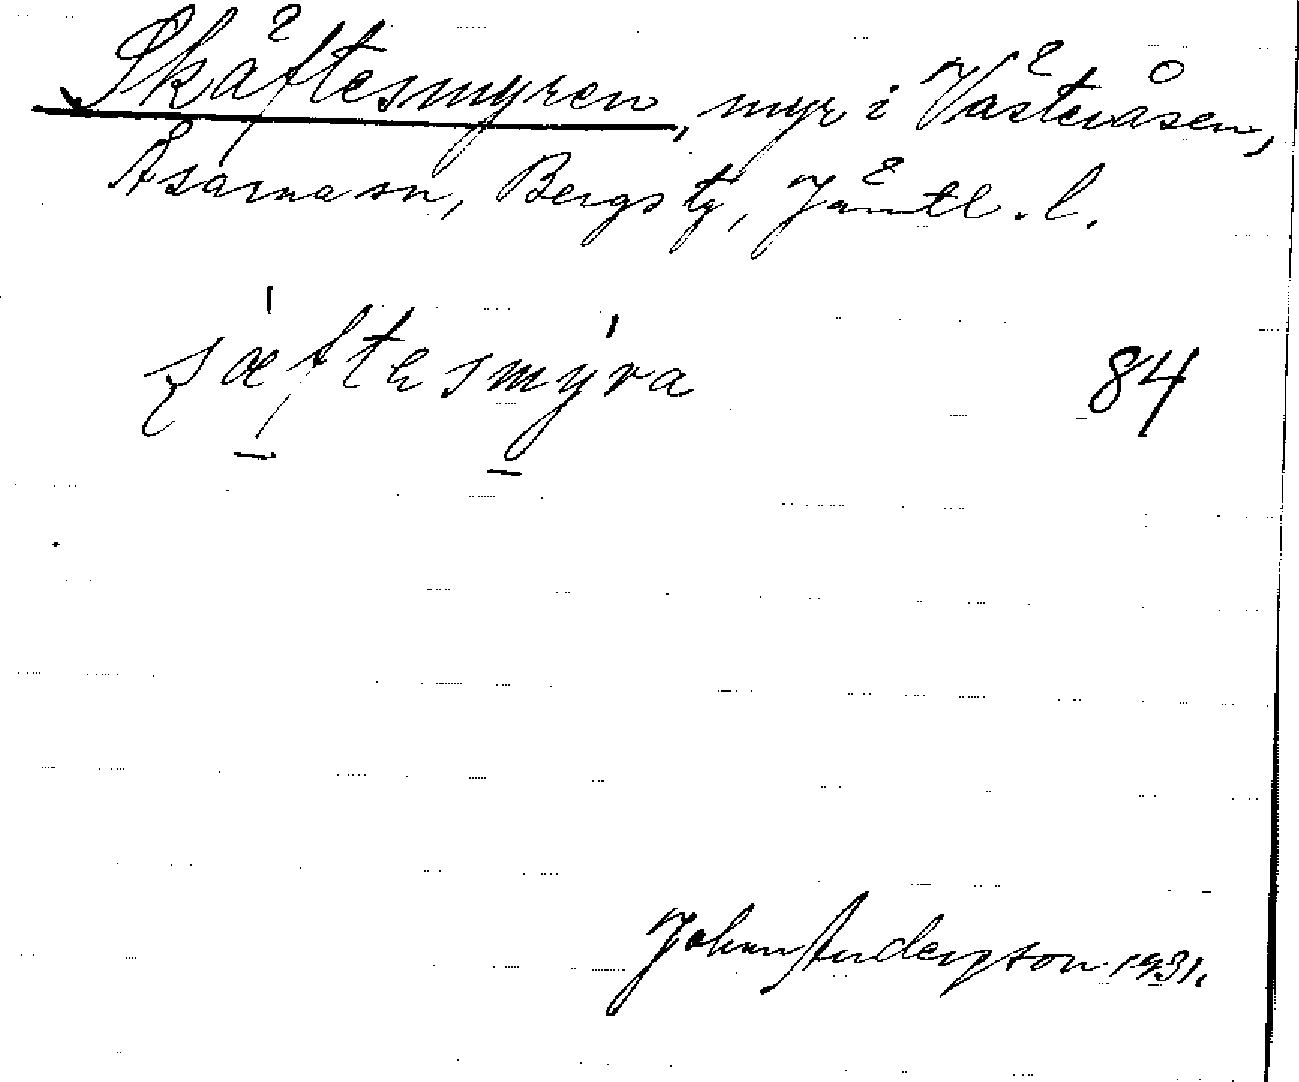 Skäftesmyren, myr i Västeråsen,
Åsarna sn, Bergs tg, Jämtl. l.
ʂæ̀ftesmýra 84
Johan Anderzson 1931.